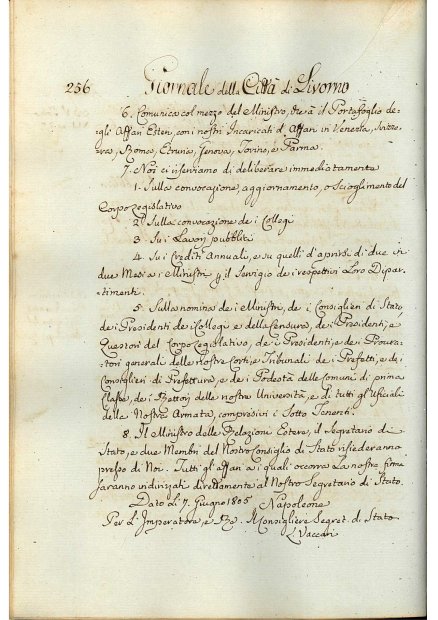 256 Giornale della Città di Livorno
6. Comunica col mezzo del Ministro, che à il Portafoglio de-
gli Affari Esteri, con i nostri Incaricati d'Affari in Venezia, Svizze-
ra, Roma, Etruria, Genova, Torino, e Parma.
7. Noi ci riserviamo di deliberare immediatamente
1. Sulla convocazione, aggiornamento, o scioglimento del
Corpo Legislativo
2. Sulla convocazione de i Collegj
3. Su i Lavori pubblici
4. Su i Crediti Annuali, e su quelli d'aprirsi di due in
due Mesi a i Ministri per il Servigio de i respettivi Loro Dipar-
timenti.
5. Sulla nomina de i Ministri, de i Consiglieri di Stato,
de i Presidenti de i Collegj e della Censura, de i Presidenti, e
Questori del Corpo Legislativo, de i Presidenti, e de i Procura-
tori generali delle nostre Corti, e Tribunali de i Prefetti, e de i
Consiglieri di Prefettura, e de i Podestà delle Comuni di prima
Classe, de i Rettori delle nostre Università, e di tutti gl'Ufficiali
della Nostra Armata, compresivi i Sotto Tenenti.
8. Il Ministro delle Relazioni Estere, il Segretario di
Stato, e due Membri del Nostro Consiglio di Stato risiederanno
presso di Noi. Tutti gl'affari a i quali occorra la nostra firma
saranno indirizzati direttamente al Nostro Segretario di Stato.
Dato li 7. Giugno 1805 Napoleone
Per l'Imperatore, e Re. Il Consigliere Segret. di Stato
L. Vaccari